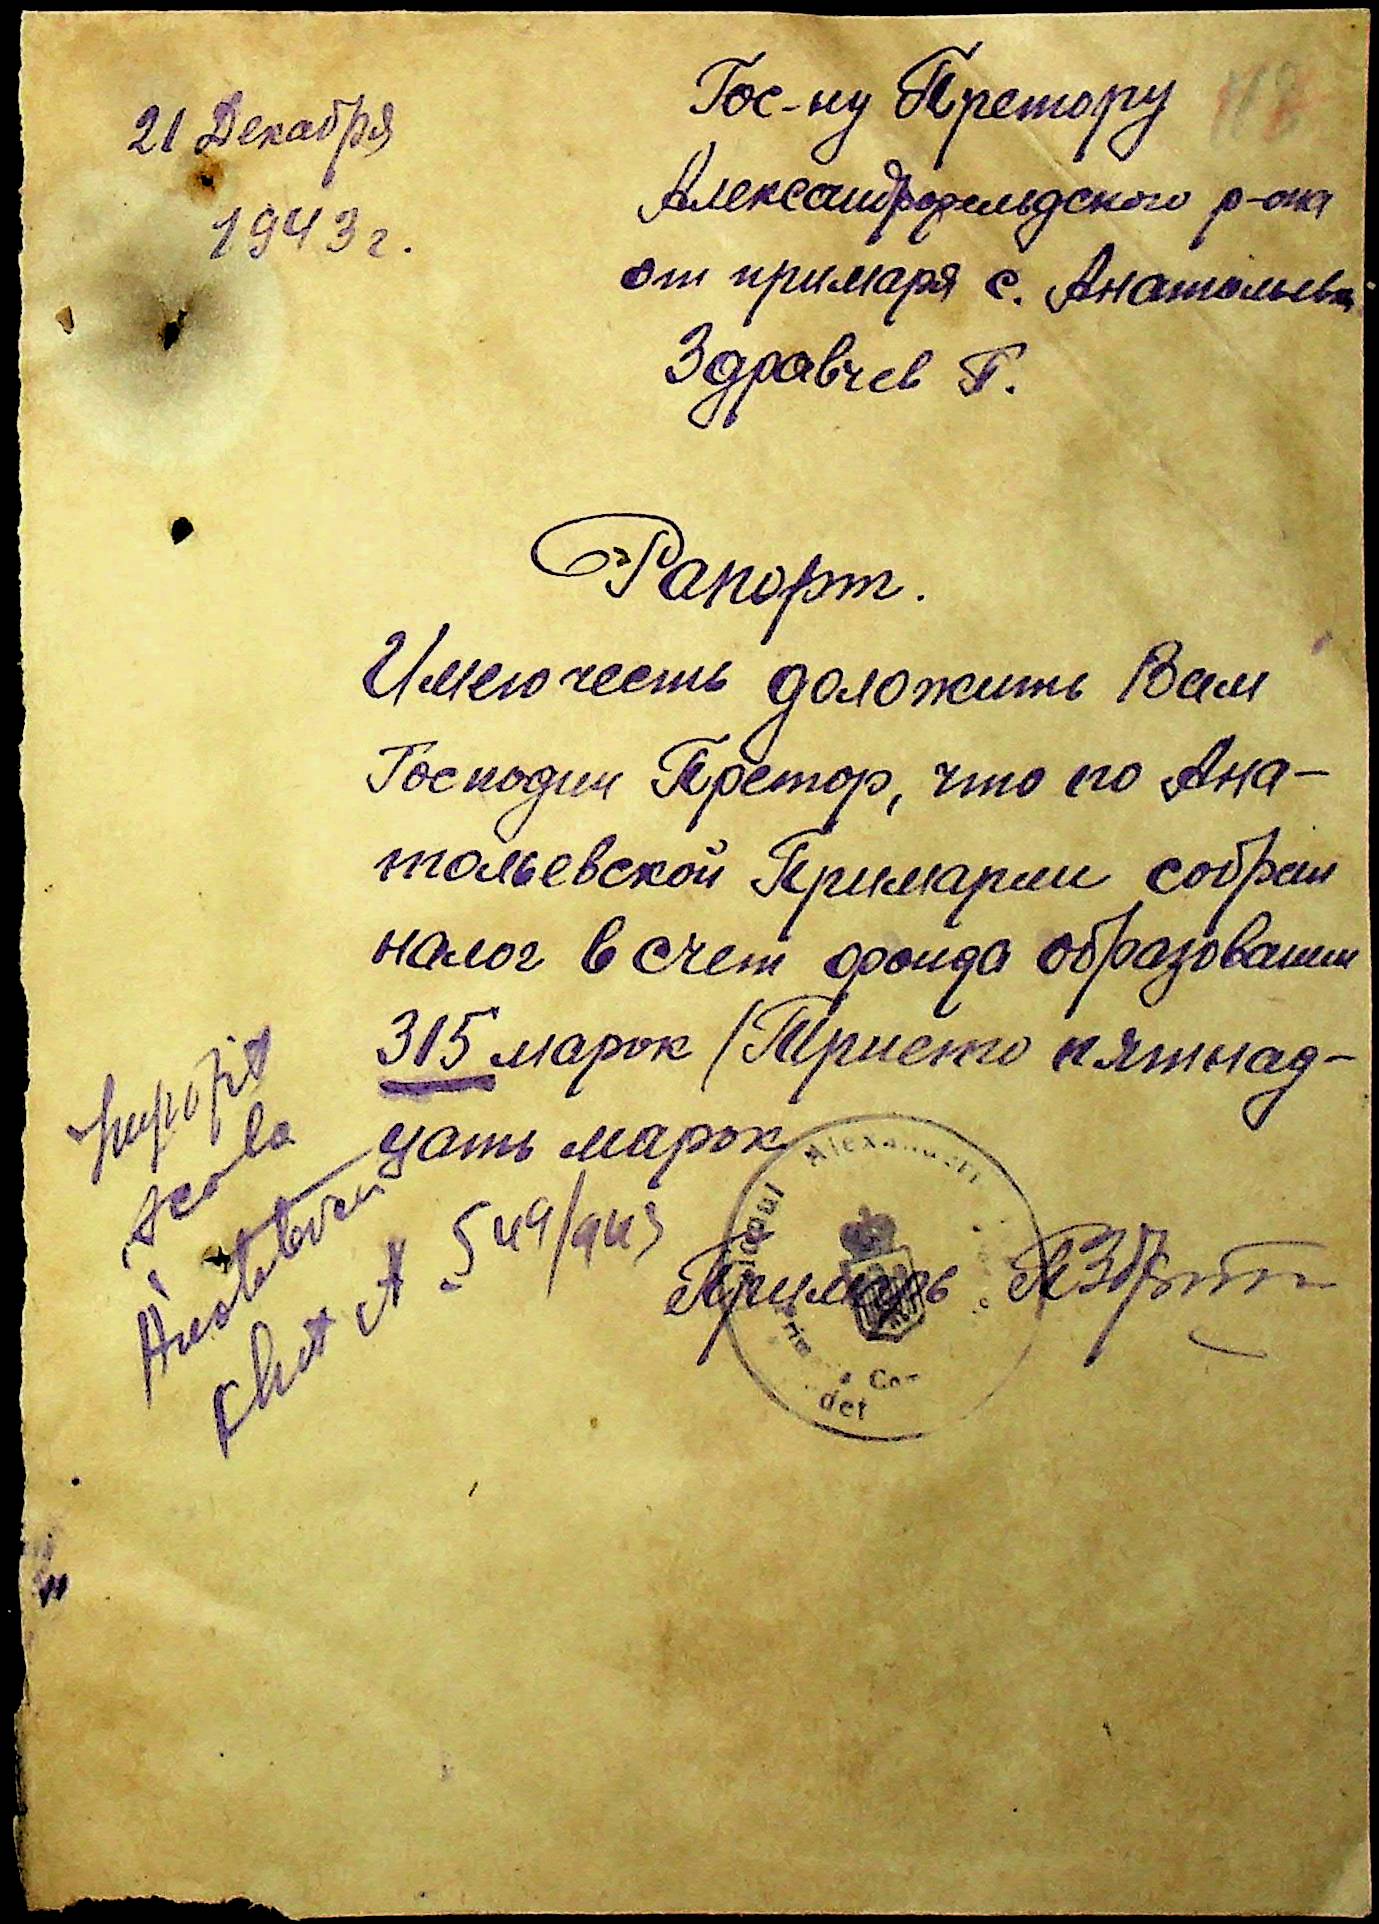 21 Декабря
1943 г.
Гос-ну Претору
Александрфельдского р-она
от примаря с. Анатольевки
Здравчев Г.
Рапорт.
Имею честь доложить Вам
Господин Претор, что по Ана-
тольевской Примарии собран
налог в счет фонда образования
315 марок (Триста пятнад-
цать марок
Impozit
Scola
Chit A 549/943
Примарь
Alexander
det